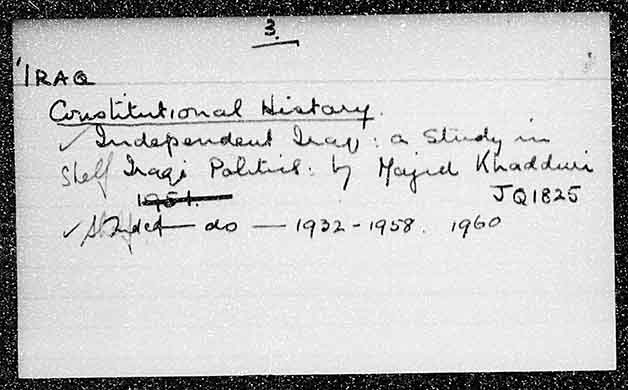 3.
'IRAQ
Constitutional History.
✓ Independent Iraq : a Study in
Shelf Iraqi Politics : by Majid Khadduri
1951. JQ1825
✓ 2nd ed — do — 1932-1958. 1960